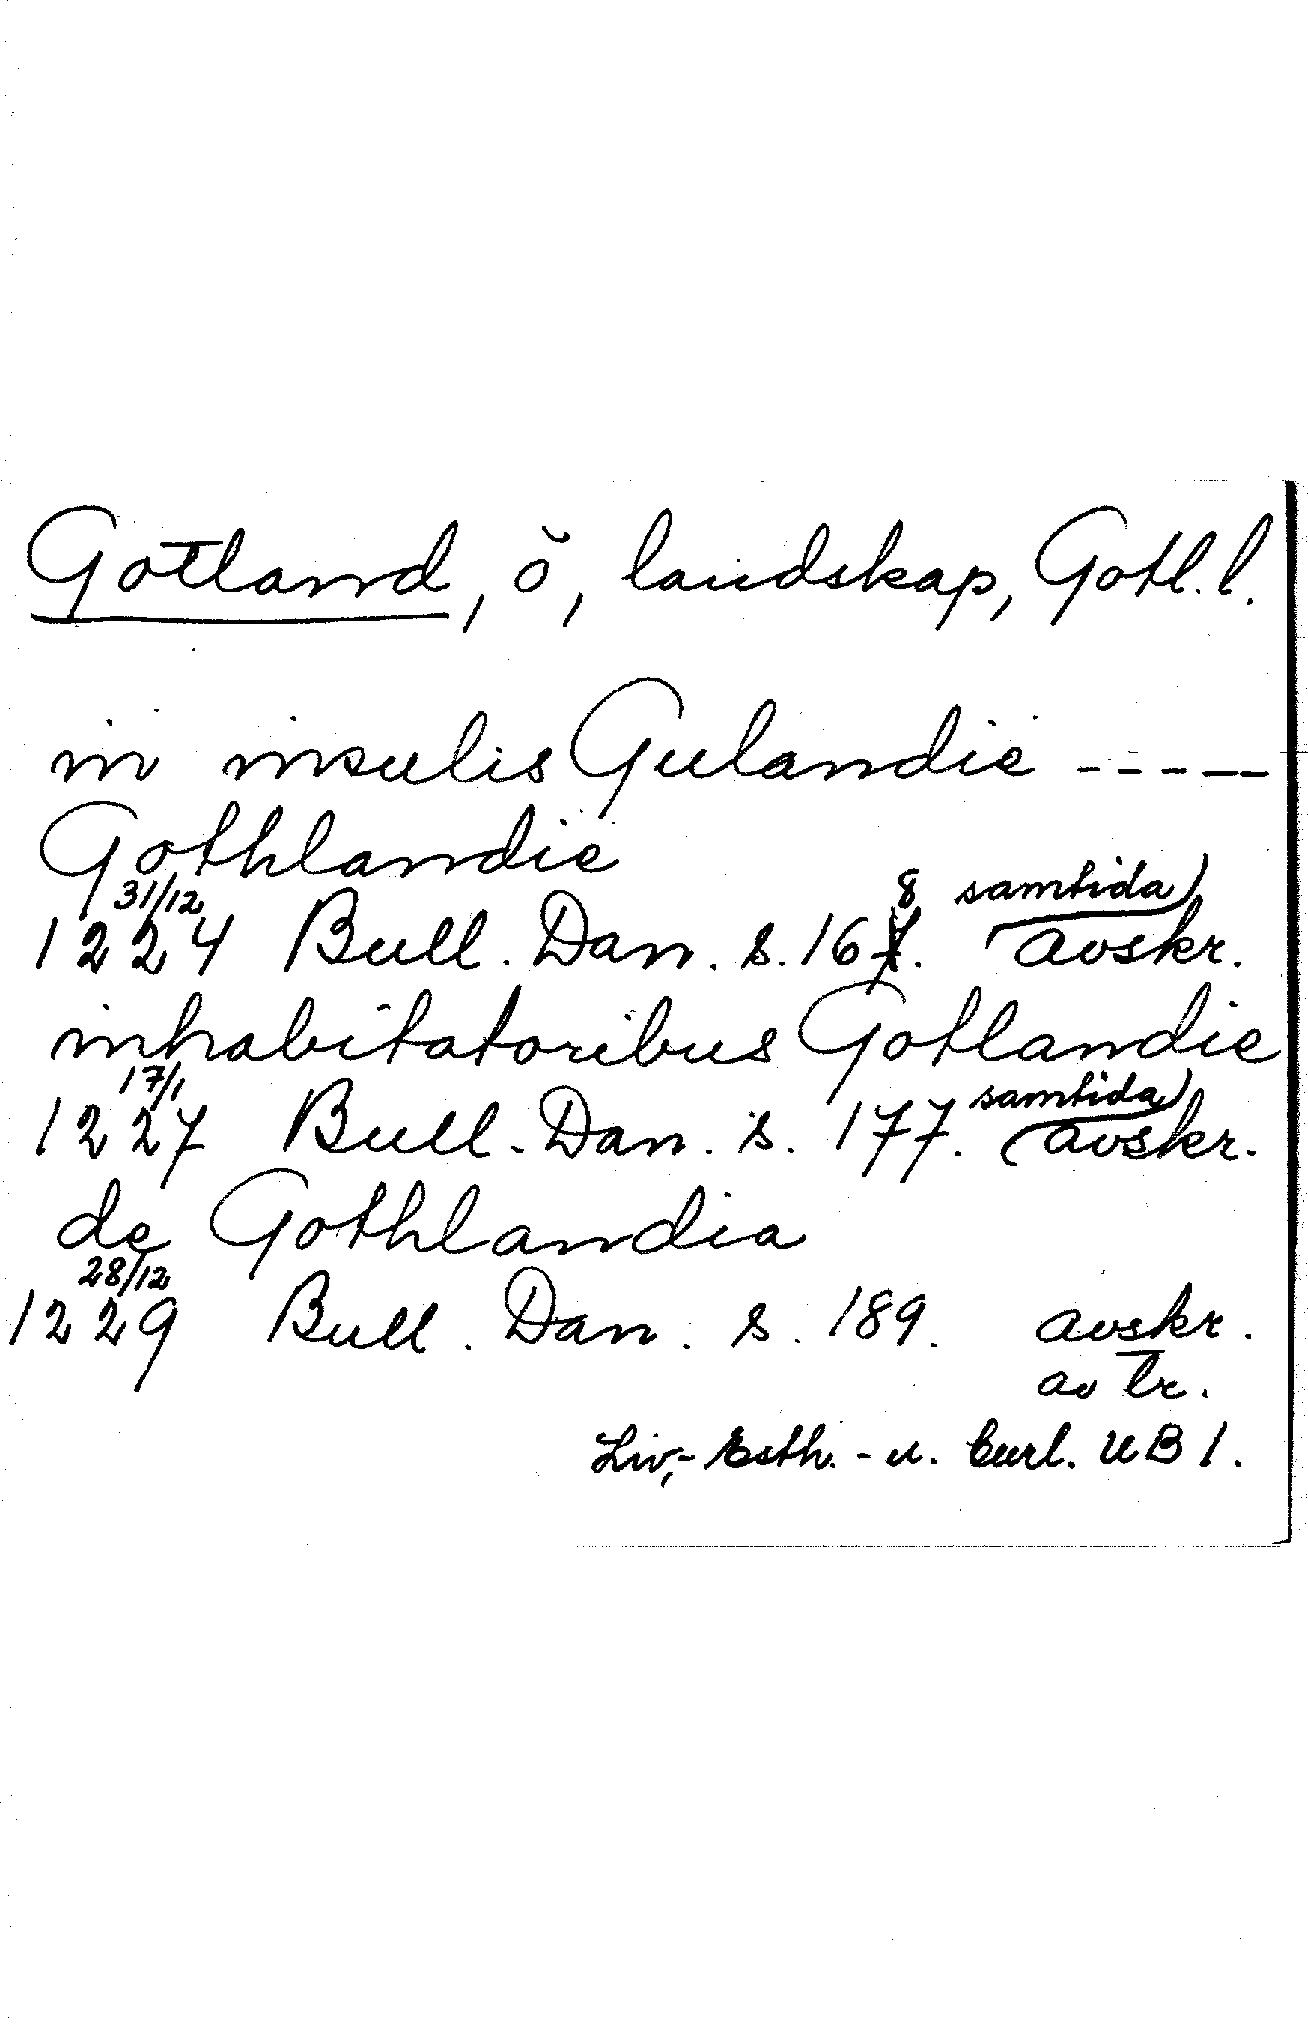 Gotland, ö, landskap, Gotl. l.
in insulis Gulandie -----
Gothlandie
31/12 8 samtida
1224 Bull. Dan. s. 167. avskr.
inhabitatoribus Gotlandie
17/1 samtida
1227 Bull. Dan. s. 177. avskr.
de Gothlandia
28/12
1229 Bull. Dan. s. 189. avskr.
av tr.
Liv,- Esth.- u. Curl. UB 1.